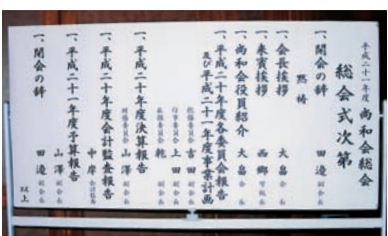 平成二十一年度 尚和会総会
総会式次第
一、開会の辞 田邉 副会長
黙祷
一、会長挨拶 大畠 会長
一、来賓挨拶 西郷 署長
一、尚和会役員紹介 大畠 会長
一、平成二十年度各委員会報告
及び平成二十一年度事業計画
総務委員会 吉田 副会長
行事委員会 上田 副会長
乾 副会長
一、平成二十年度決算報告
財務委員会 山澤 副会長
一、平成二十年度会計監査報告
中岸 会計監査
一、平成二十一年度予算報告
山澤 副会長
一、閉会の辞 田邉 副会長
以上